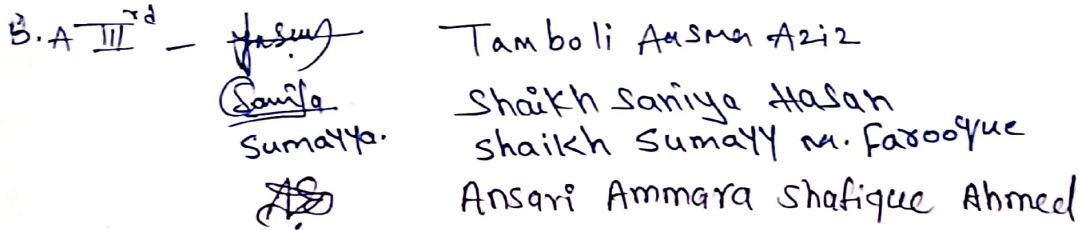 B.A IIIrd - Tamboli Aasma Aziz
Saniya Shaikh Saniya Hasan
Sumayya. Shaikh Sumayy M. Farooque
Ansari Ammara Shafique Ahmed